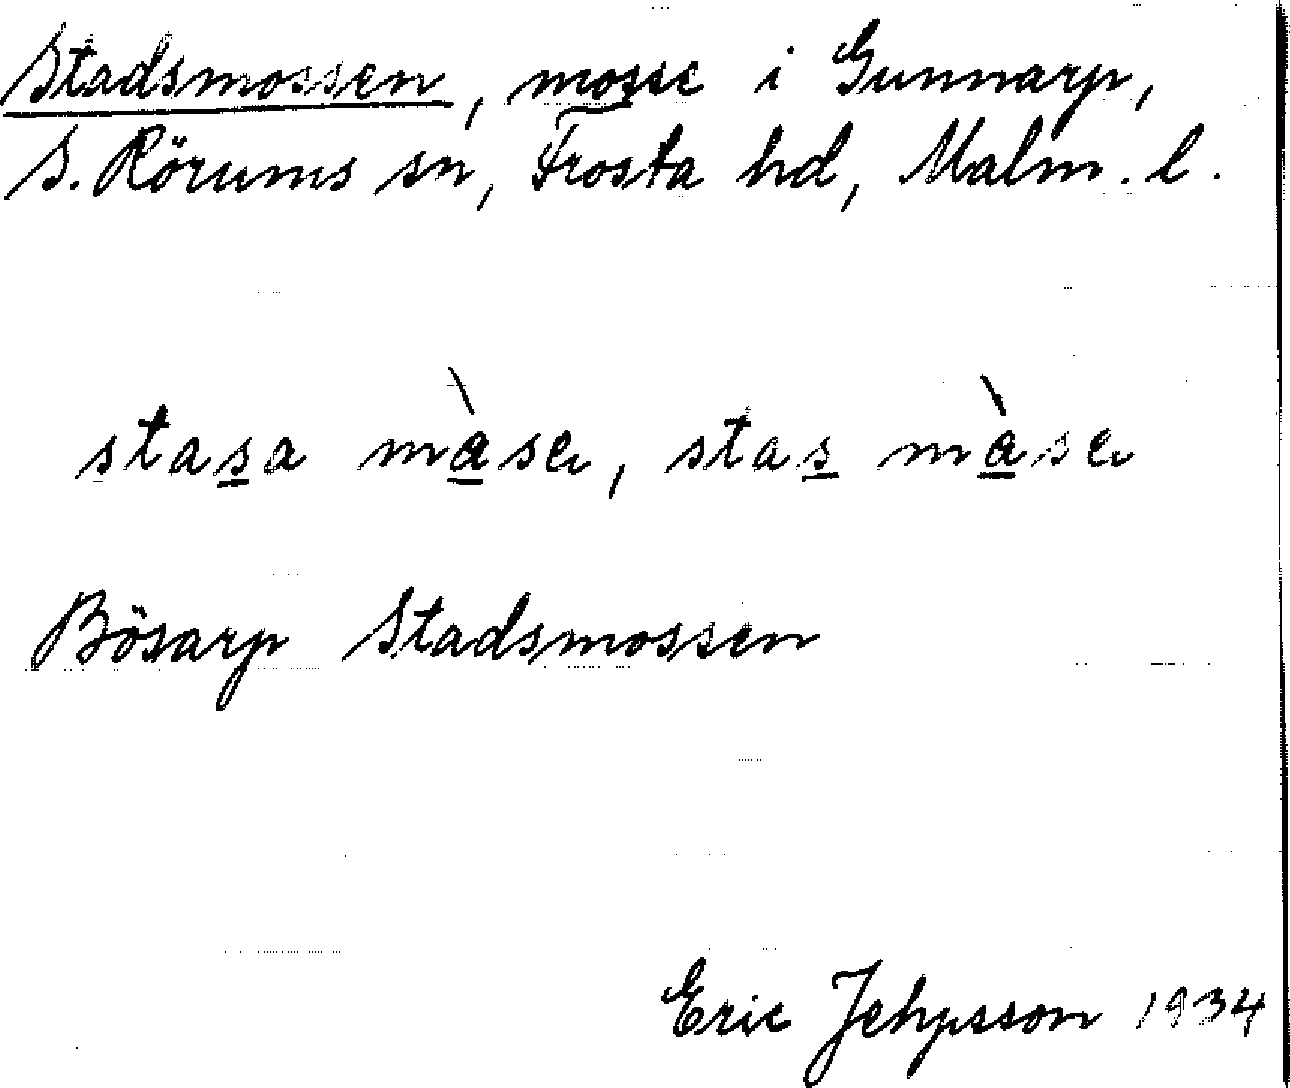 Stadsmossen, mosse i Gunnarp,
S. Rörums sn, Frosta hd, Malm. l.
stasa màsen, stas màsen
Bösarp Stadsmossen
Eric Jehpsson 1934